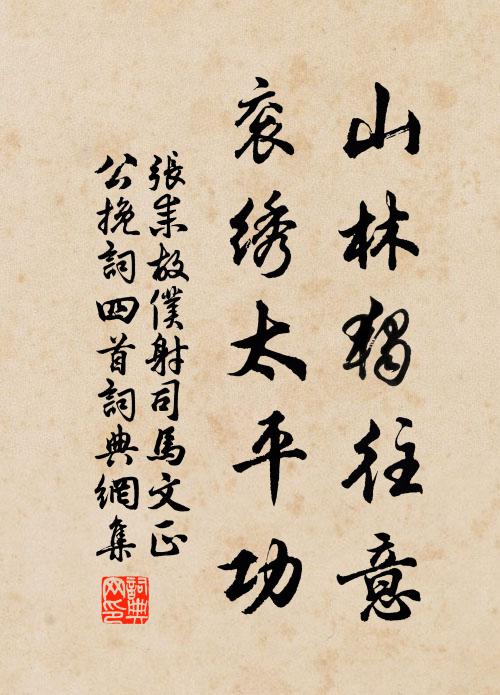 山林獨往意
衮绣太平功
張耒故僕射司馬文正
公挽詞四首詞典網集
詞典網印